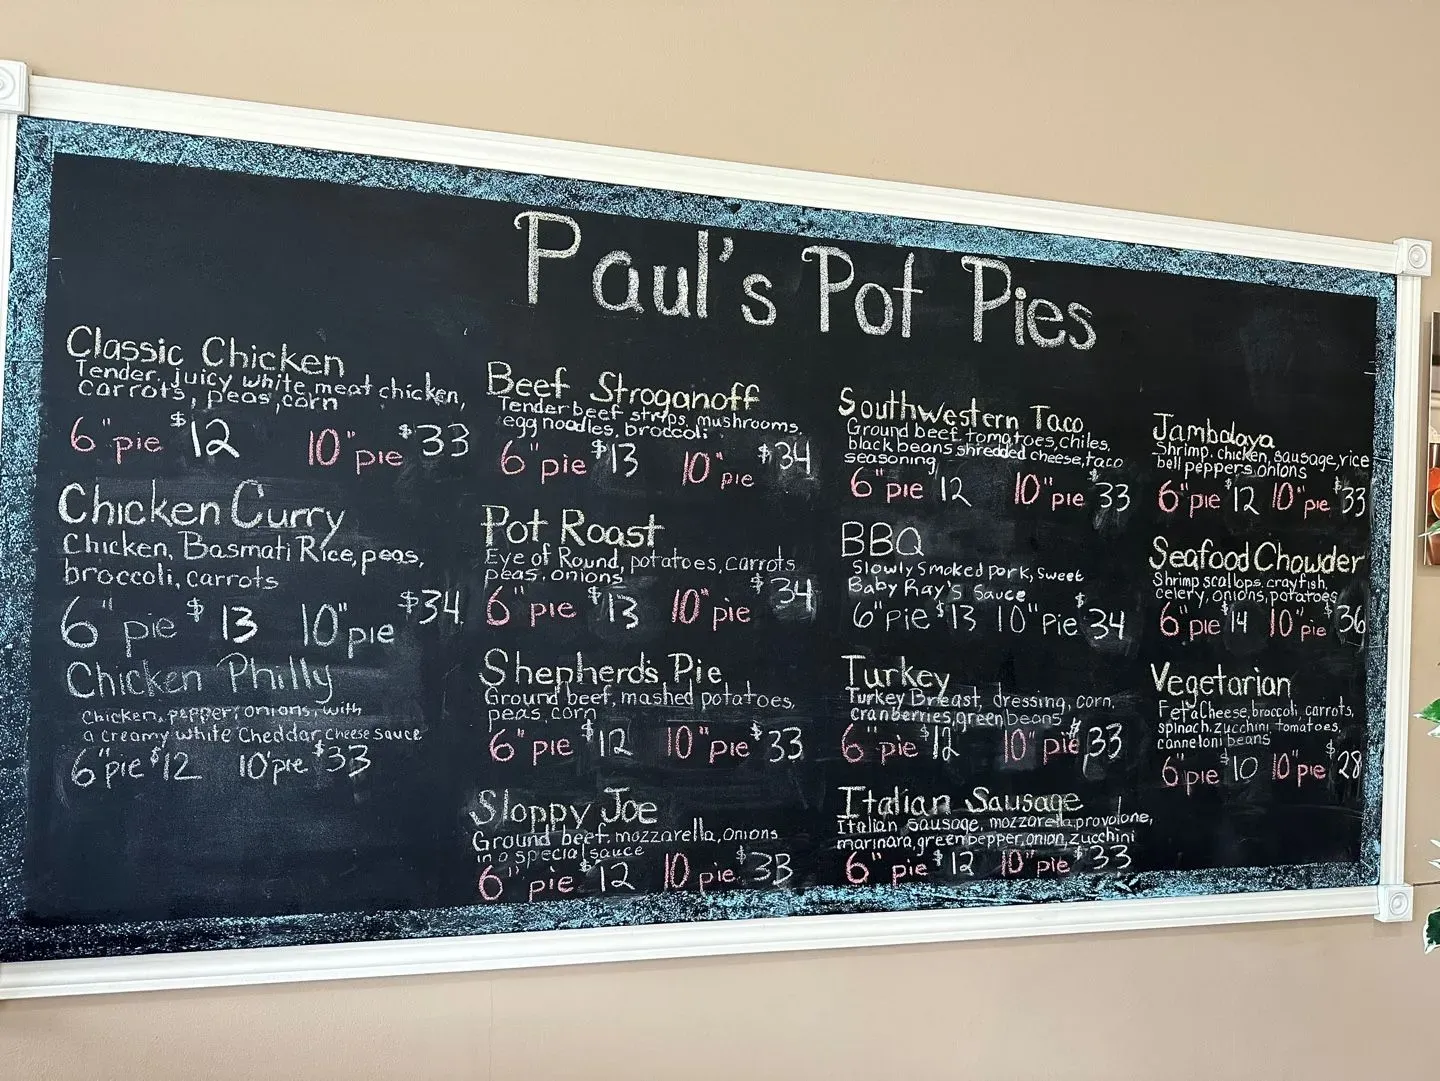 Paul's Pot Pies
Classic Chicken
Tender, juicy white meat chicken,
carrots, peas, corn
6" pie $12 10" pie $33
Chicken Curry
Chicken, Basmati Rice, peas,
broccoli, carrots
6" pie $13 10" pie $34
Chicken Philly
Chicken, pepper, onions, with
a creamy white Cheddar cheese sauce
6" pie $12 10" pie $33
Beef Stroganoff
Tender beef strips, mushrooms,
egg noodles, broccoli
6" pie $13 10" pie $34
Pot Roast
Eye of Round, potatoes, carrots
peas, onions
6" pie $13 10" pie $34
Shepherd's Pie
Ground beef, mashed potatoes,
peas, corn
6" pie $12 10" pie $33
Sloppy Joe
Ground beef, mozzarella, onions
in a special sauce
6" pie $12 10 pie $33
Southwestern Taco
Ground beef, tomatoes, chiles,
black beans shredded cheese, taco
seasoning
6" pie 12 10" pie $33
BBQ
Slowly smoked pork, sweet
Baby Ray's Sauce
6" pie $13 10" pie $34
Turkey
Turkey Breast, dressing, corn,
cranberries, green beans
6" pie $12 10" pie $33
Italian Sausage
Italian sausage, mozzarella, provolone,
marinara, green pepper, onion, zucchini
6" pie $12 10" pie $33
Jambalaya
Shrimp, chicken, sausage, rice
bell peppers onions
6" pie $12 10" pie $33
Seafood Chowder
Shrimp scallops, crayfish,
celery, onions, potatoes
6" pie $14 10" pie $36
Vegetarian
Feta Cheese, broccoli, carrots,
spinach, zucchini, tomatoes,
canneloni beans
6" pie $10 10" pie $28